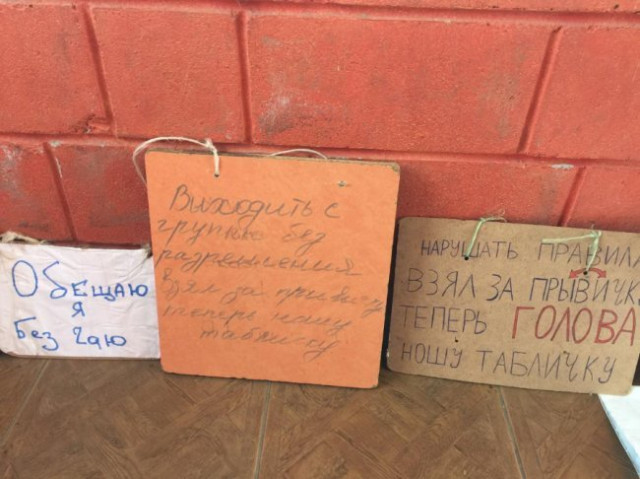 ОБЕЩАЮ
Я
Без чаю
Выходить с
без
разрешения
взял за привычку
теперь ношу
табличку
НАРУШАТЬ ПРАВИЛА
ВЗЯЛ ЗА ПРЫВИЧК
ТЕПЕРЬ ГОЛОВА
НОШУ ТАБЛИЧКУ